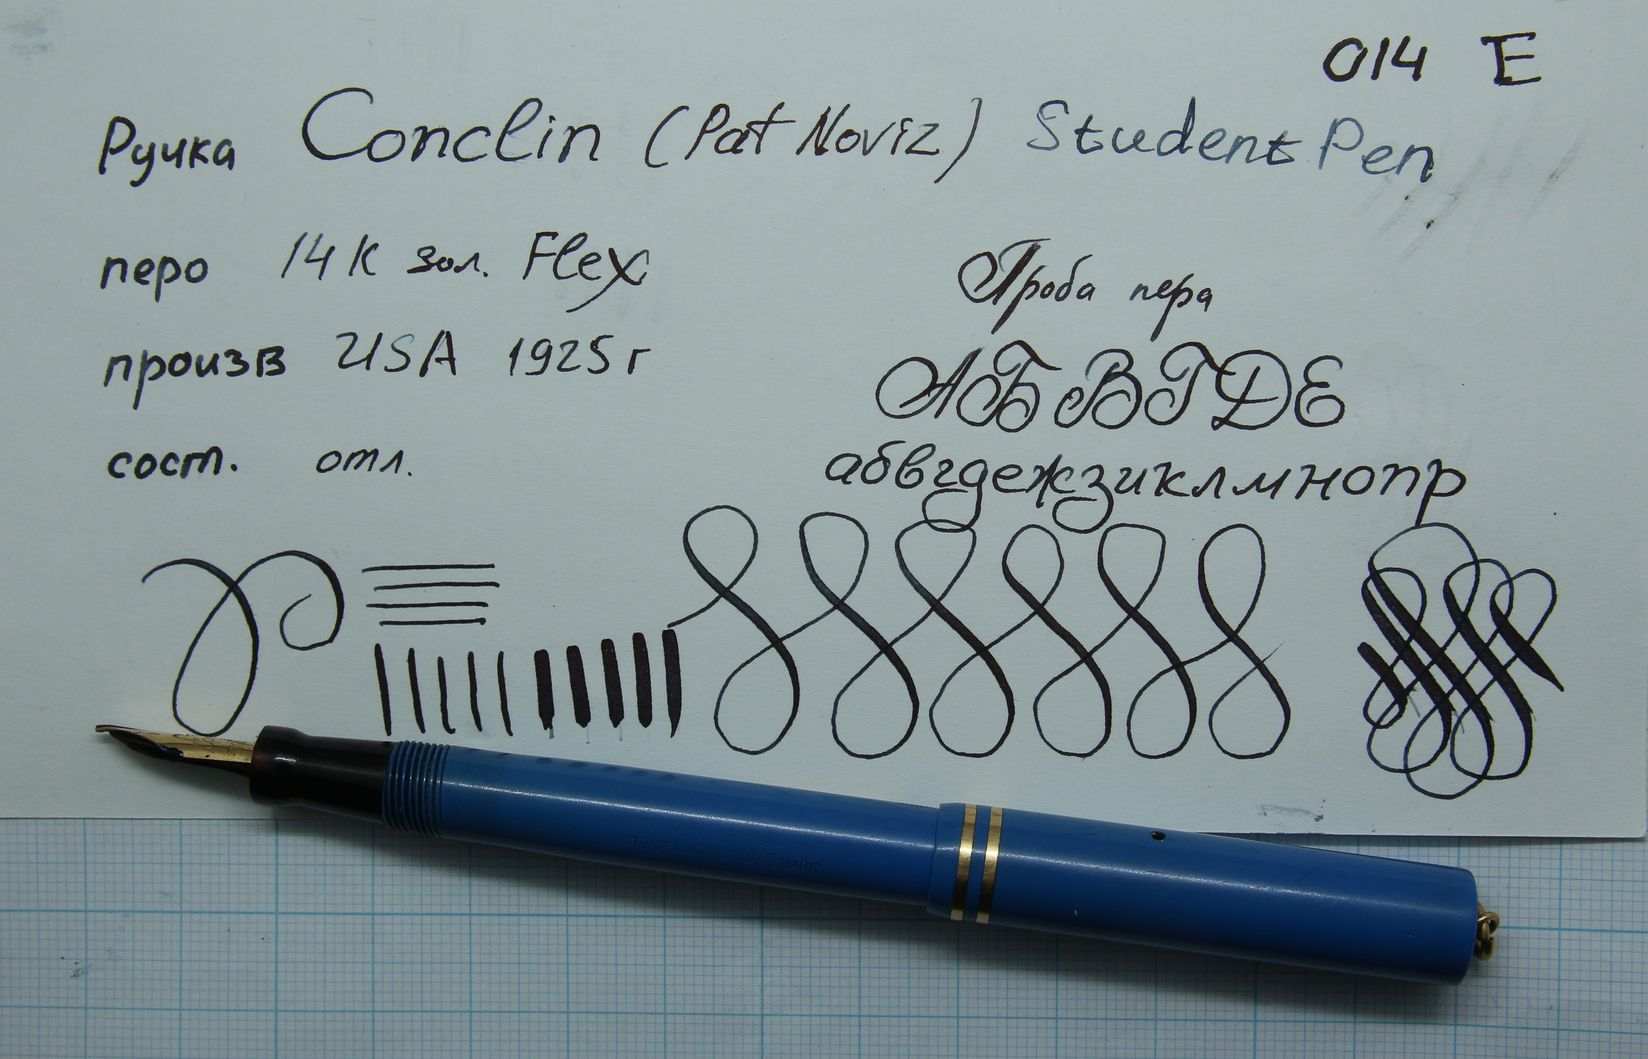 014 E
Ручка Conclin (Pat Noviz) Student Pen
перо 14К зол. Flex
произв USA 1925г
сост. отл.
Проба пера
АБВГДЕ
абвгдежзиклмнопр